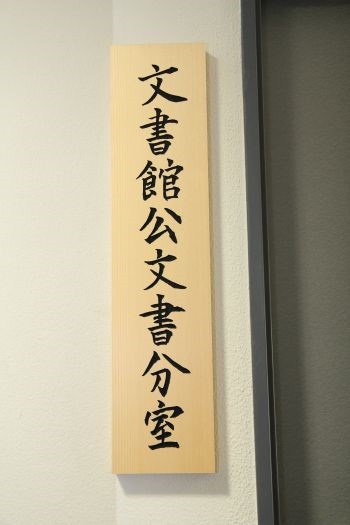 文書館公文書分室